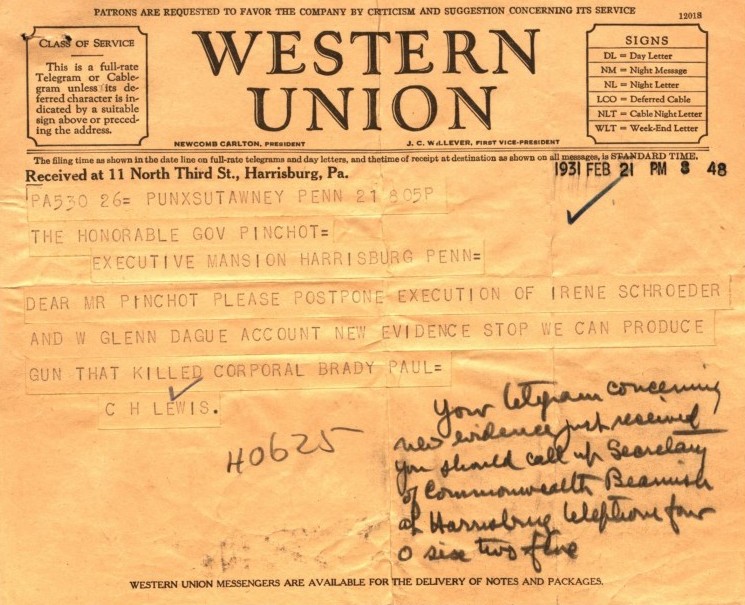 PATRONS ARE REQUESTED TO FAVOR THE COMPANY BY CRITICISM AND SUGGESTION CONCERNING ITS SERVICE
1201S
CLASS OF SERVICE
This is a full-rate
Telegram or Cable-
gram unless its de-
ferred character is in-
dicated by a suitable
sign above or preced-
ing the address.
WESTERN
UNION
NEWCOMB CARLTON, PRESIDENT
J. C. WILLEVER, FIRST VICE-PRESIDENT
SIGNS
DL = Day Letter
NM = Night Message
NL = Night Letter
LCO = Deferred Cable
NLT = Cable Night Letter
WLT = Week-End Letter
The filing time as shown in the date line on full-rate telegrams and day letters, and the time of receipt at destination as shown on all messages, is STANDARD TIME.
Received at 11 North Third St., Harrisburg, Pa.
1931 FEB 21 PM 8 48
PA530 26= PUNXSUTAWNEY PENN 21 805P
THE HONORABLE GOV PINCHOT=
EXECUTIVE MANSION HARRISBURG PENN=
DEAR MR PINCHOT PLEASE POSTPONE EXECUTION OF IRENE SCHROEDER
AND W GLENN DAGUE ACCOUNT NEW EVIDENCE STOP WE CAN PRODUCE
GUN THAT KILLED CORPORAL BRADY PAUL=
C H LEWIS.
H0625
Your telegram concerning
new evidence just received
you should call up Secretary
of Commonwealth Beamish
at Harrisburg telephone four
0 six two five
WESTERN UNION MESSENGERS ARE AVAILABLE FOR THE DELIVERY OF NOTES AND PACKAGES.